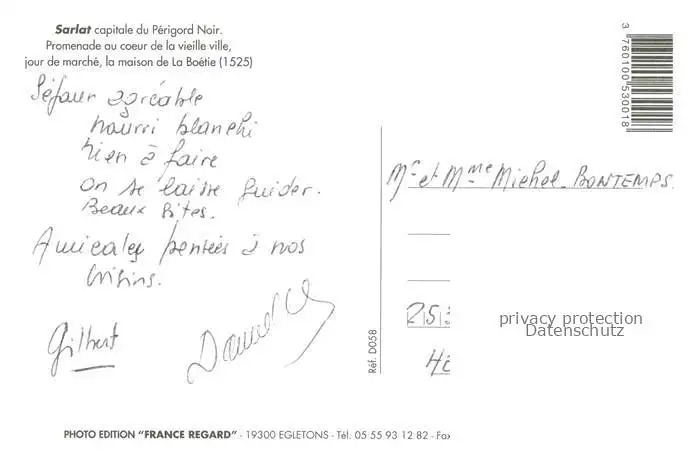 Sarlat capitale du Périgord Noir.
Promenade au coeur de la vieille ville,
jour de marché, la maison de La Boétie (1525)
Séjour agréable
nourri blanchi
rien à faire
on se laisse guider.
Beaux sites.
Amicales pensées à nos
voisins.
Gilbert
3 760100 530018
Mr et Mme Michel BONTEMPS
privacy protection
Datenschutz
Réf. D058
PHOTO EDITION "FRANCE REGARD" - 19300 EGLETONS - Tél. 05 55 93 12 82 - Fax